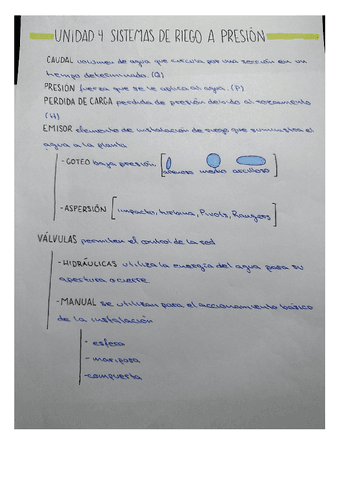 UNIDAD 4 SISTEMAS DE RIEGO A PRESIÓN
CAUDAL volumen de agua que circula por una sección en un
tiempo determinado. (Q)
PRESIÓN fuerza que se le aplica al agua. (P)
PERDIDA DE CARGA perdida de presión debido al rozamiento
(H)
EMISOR elemento de instalación de riego que suministra el
agua a la planta
- GOTEO baja presión
arenoso medio arcilloso
- ASPERSIÓN [impacto, turbina, Pivots, Rangers]
VÁLVULAS permiten el control de la red
- HIDRÁULICAS utiliza la energía del agua para su
apertura o cierre
- MANUAL se utilizan para el accionamiento básico
de la instalación
- esfera
- mariposa
- compuerta